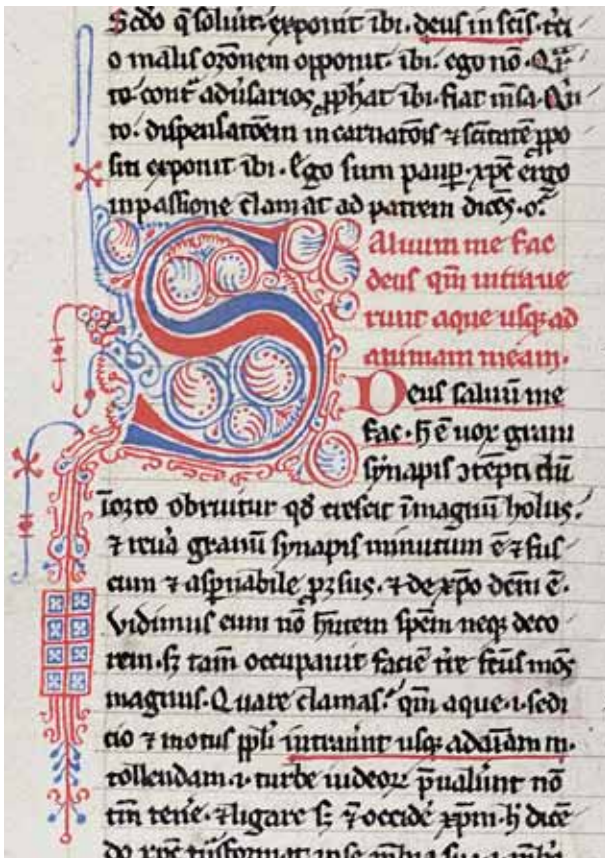 Scďo q̄ soluit. exponit ibi. deus in scīs. t̄ci
o malis or̄onem opponit. ibi. ego nō. Q̄r
to cont̄ adūsarios ꝓphat ibi. fiat m̄sa. Q̄n
to. dispensatōem incarnatōis ⁊ sc̄itatē ꝓpo
siti exponit ibi. Ego sum paup̱. xp̄c ergo
inpassione clamat ad patrem dicēs. o.
Saluum me fac
deus qm̄ intraue
runt aque usqꝫ ad
animam meam.
Deus saluū me
fac. h̄ ē uox grani
synapis ↄtēpti dū
ī orto obruitur qđ crescit ī magnū holus.
⁊ reua granū synapis minutum ē ⁊ fus
cum ⁊ asp̄nabile ꝓꝛsus. ⁊ de xp̄o dc̄m ē.
Vidimus eum nō h̄ntem spēm neqꝫ deco
rem. sꝫ tam̄ occupauit faciē t̄re fc̄us mōs
magnus. Quare clamas. qm̄ aque .i. sedi
cio ⁊ motus pp̄li intrauūnt usqꝫ ad aīam m.
tollendam .i. turbe iudeoꝝ p̄ualūnt nō
tm̄ tene. ⁊ ligare sꝫ ⁊ occidē xp̄m. h̄ dicē
do xp̄c tūsformat. in se mēbra sua